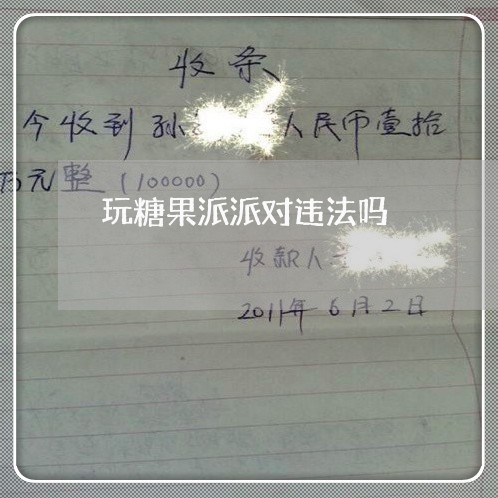 收条
今收到孙 人民币壹拾
万元整(100000)
玩糖果派派对违法吗
收款人
2011年6月2日